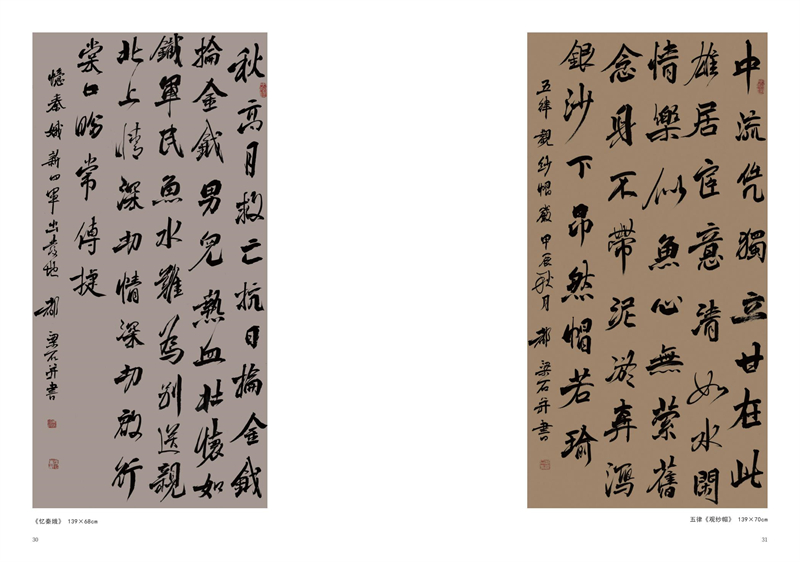 秋高月救亡抗日掄金鉞
掄金鉞男兒熱血壯懷如
鐵軍民魚水難為別送親
北上情深切情深切啟行
裳口盼常傳捷
憶秦娥 新四軍出 都梁石并書
《忆秦娥》 139×68cm
30
中流凭獨立甘在此
雄居宦意清如水閑
情樂似魚心無縈舊
念身不帶泥淤弄瀉
銀沙下昂然帽若瑜
五律 觀紗帽巖 甲辰秋月 都梁石并書
五律《观纱帽》 139×70cm
31